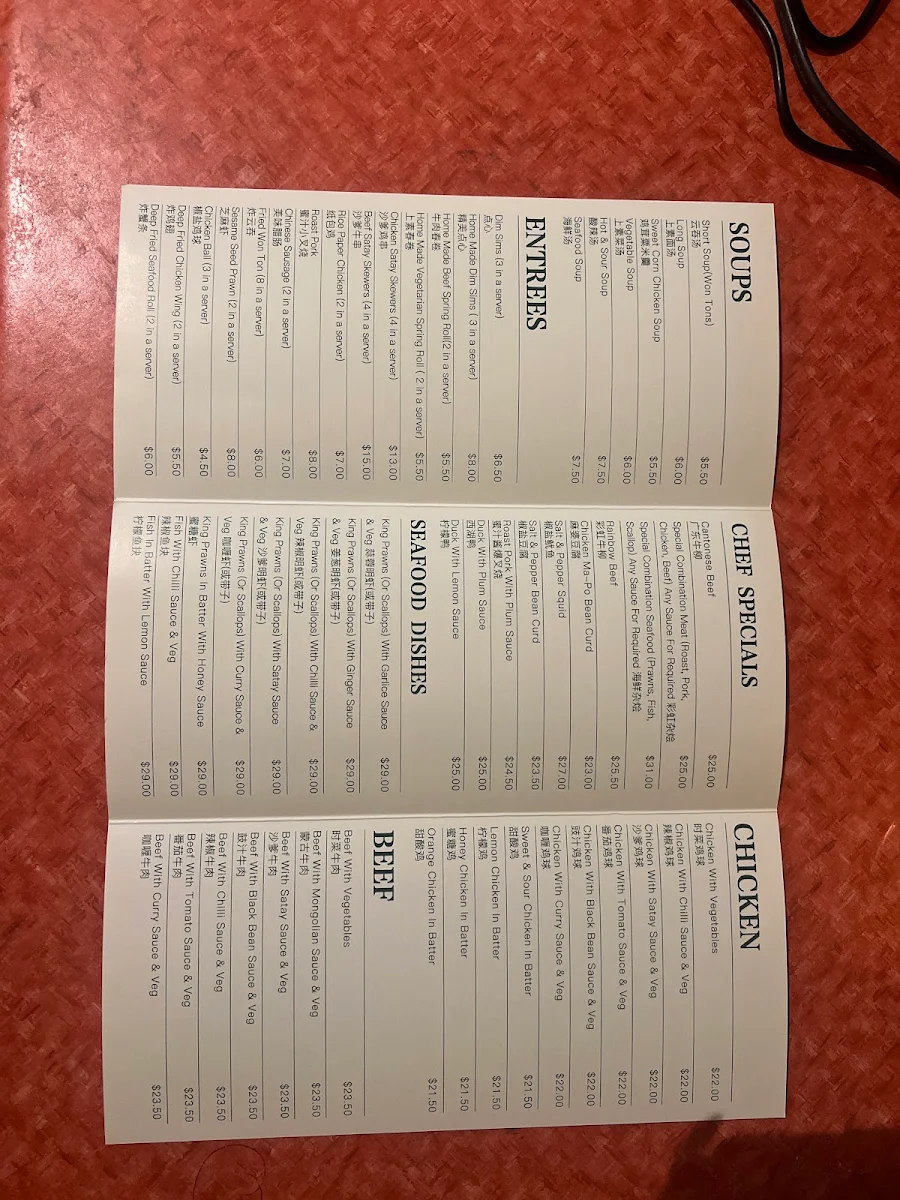 SOUPS
Short Soup(Won Tons) $5.50
云吞汤
Long Soup $6.00
上素面汤
Sweet Corn Chicken Soup $5.50
鸡茸粟米羹
Vegetable Soup $6.00
上素菜汤
Hot & Sour Soup $7.50
酸辣汤
Seafood Soup $7.50
海鲜汤
ENTREES
Dim Sims (3 in a server) $6.50
点心
Home Made Dim Sims ( 3 in a server) $8.00
精美点心
Home Made Beef Spring Roll(2 in a server) $5.50
牛肉春卷
Home Made Vegetarian Spring Roll ( 2 in a server) $5.50
上素春卷
Chicken Satay Skewers (4 in a server) $13.00
沙爹鸡串
Beef Satay Skewers (4 in a server) $15.00
沙爹牛串
Rice Paper Chicken (2 in a server) $7.00
纸包鸡
Roast Pork $8.00
蜜汁小叉烧
Chinese Sausage (2 in a server) $7.00
美味腊肠
Fried Won Ton (8 in a server) $6.00
炸云吞
Sesame Seed Prawn (2 in a server) $8.00
芝麻虾
Chicken Ball (3 in a server) $4.50
椒盐鸡球
Deep Fried Chicken Wing (2 in a server) $5.50
炸鸡翅
Deep Fried Seafood Roll (2 in a server) $6.00
炸蟹条
CHEF SPECIALS
Cantonese Beef $25.00
广东牛柳
Special Combination Meat (Roast, Pork,
Chicken, Beef) Any Sauce For Required 彩虹杂烩 $25.00
Special Combination Seafood (Prawns, Fish,
Scallop) Any Sauce For Required 海鲜杂烩 $31.00
Rainbow Beef $25.50
彩虹牛柳
Chicken Ma-Po Bean Curd $23.00
麻婆豆腐
Salt & Pepper Squid $27.00
椒盐鱿鱼
Salt & Pepper Bean Curd $23.50
椒盐豆腐
Roast Pork With Plum Sauce $24.50
蜜汁酱爆叉烧
Duck With Plum Sauce $25.00
西湖鸭
Duck With Lemon Sauce $25.00
柠檬鸭
SEAFOOD DISHES
King Prawns (Or Scallops) With Garlice Sauce $29.00
& Veg 蒜蓉明虾(或带子)
King Prawns (Or Scallops) With Ginger Sauce $29.00
& Veg 姜葱明虾(或带子)
King Prawns (Or Scallops) With Chilli Sauce & $29.00
Veg 辣椒明虾(或带子)
King Prawns (Or Scallops) With Satay Sauce $29.00
& Veg 沙爹明虾(或带子)
King Prawns (Or Scallops) With Curry Sauce & $29.00
Veg 咖喱虾(或带子)
King Prawns In Batter With Honey Sauce $29.00
蜜糖虾
Fish With Chilli Sauce & Veg $29.00
辣椒鱼块
Fish In Batter With Lemon Sauce $29.00
柠檬鱼块
CHICKEN
Chicken With Vegetables $22.00
时菜鸡球
Chicken With Chilli Sauce & Veg $22.00
辣椒鸡球
Chicken With Satay Sauce & Veg $22.00
沙爹鸡球
Chicken With Tomato Sauce & Veg $22.00
番茄鸡球
Chicken With Black Bean Sauce & Veg $22.00
豉汁鸡球
Chicken With Curry Sauce & Veg $22.00
咖喱鸡球
Sweet & Sour Chicken In Batter $21.50
甜酸鸡
Lemon Chicken In Batter $21.50
柠檬鸡
Honey Chicken In Batter $21.50
蜜糖鸡
Orange Chicken In Batter $21.50
甜酸鸡
BEEF
Beef With Vegetables $23.50
时菜牛肉
Beef With Mongolian Sauce & Veg $23.50
蒙古牛肉
Beef With Satay Sauce & Veg $23.50
沙爹牛肉
Beef With Black Bean Sauce & Veg $23.50
豉汁牛肉
Beef With Chilli Sauce & Veg $23.50
辣椒牛肉
Beef With Tomato Sauce & Veg $23.50
番茄牛肉
Beef With Curry Sauce & Veg $23.50
咖喱牛肉